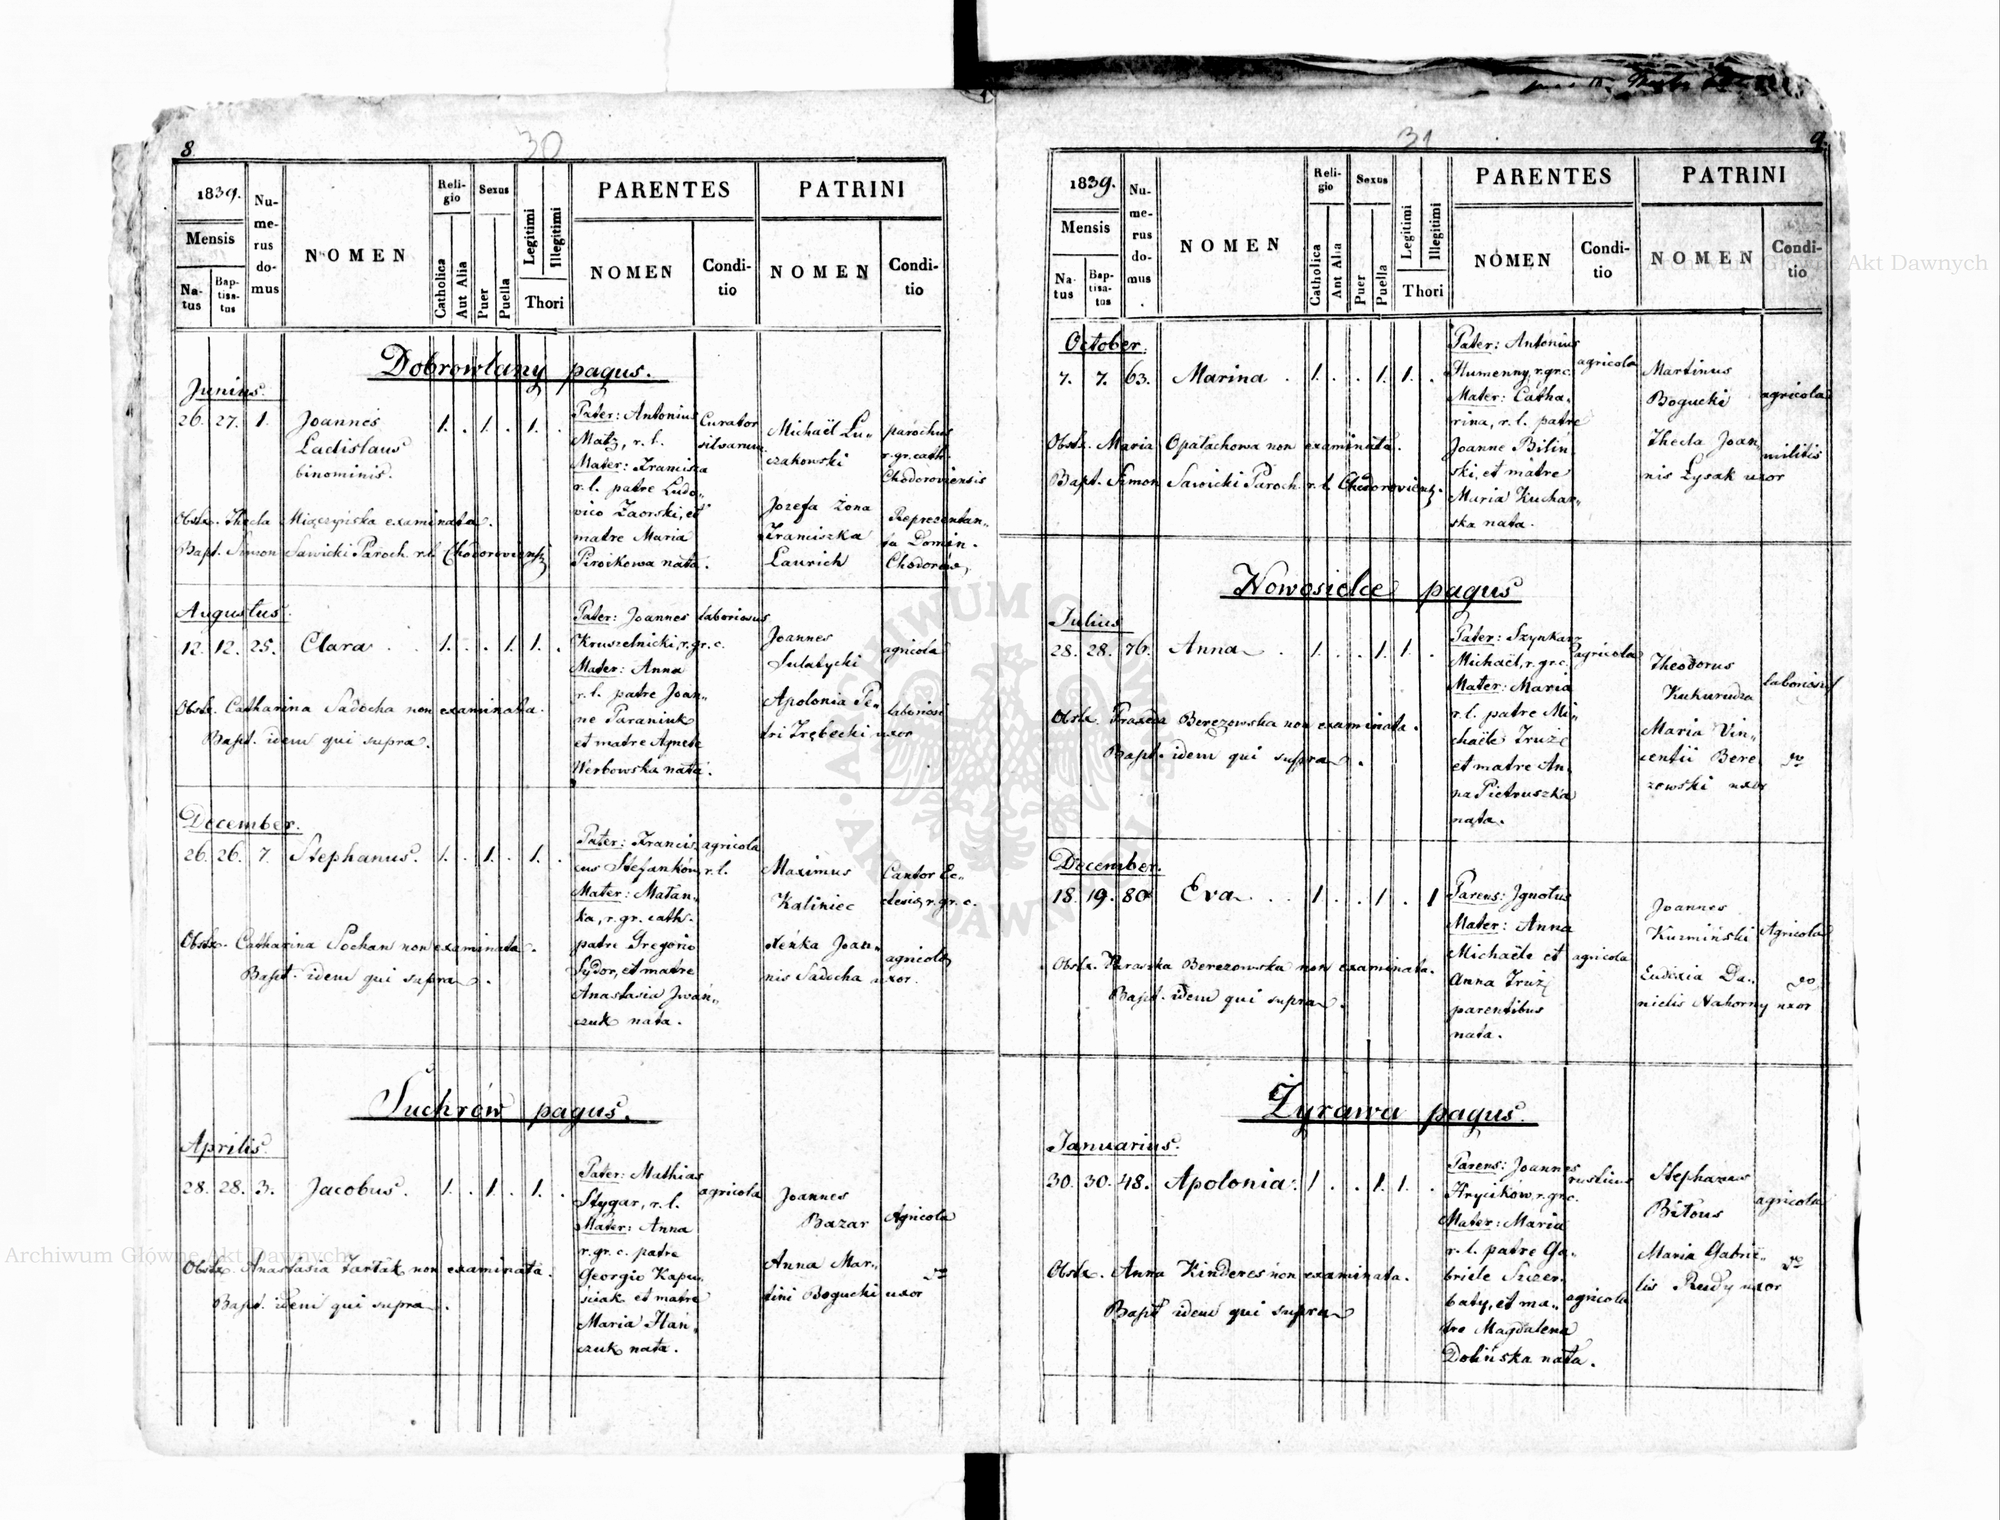 8
30
1839.
Mensis
Na-
tus
Bap-
tisa-
tus
Nu-
me-
rus
do-
mus
NOMEN
Reli-
gio
Catholica
Aut Alia
Sexus
Puer
Puella
Legitimi
Illegitimi
Thori
PARENTES
NOMEN
Condi-
tio
PATRINI
NOMEN
Condi-
tio
Dobrowlany pagus.
Junius.
26. 27. 1. Joannes
Ladislaus
binominis.
1. . 1. . 1. .
Pater: Antonius
Matz, r. l.
Mater: Francisca
r. l. patre Ludo-
vico Żaorski, et
matre Maria
Piroikowa nata.
Curator
silvarum
Michaël Lu-
czakowski
parochus
r. gr. cath.
Chodoroviensis
Jozefa żona
Franciszka
Laurich
Reprezentan-
ta Domin.
Chodorow,
Obstx. Thecla Miączyńska examinata.
Bapt. Simon Sawicki Paroch. r. l. Chodoroviensis
Augustus.
12. 12. 25. Clara . . 1. . . 1. 1. .
Pater: Joannes
Kruszelnicki, r. gr. c.
Mater: Anna
r. l. patre Joan-
ne Paraniuk
et matre Agnete
Werbowska nata.
laboriosus
Joannes
Sulatycki
agricola
Apolonia Pe-
tri Trębecki uxor
laboriosi
Obstx. Catharina Sadocha non examinata.
Bapt. idem qui supra.
December.
26. 26. 7. Stephanus. 1. . 1. . 1. .
Pater: Francis-
cus Stefanków, r. l.
Mater: Matan-
ka, r. gr. cath.
patre Gregorio
Sydor, et matre
Anastasia Jwań-
czuk nata.
agricola
Maximus
Kaliniec
Cantor Ec-
clesiæ, r. gr. c.
Neńka Joan-
nis Sadocha uxor.
agricola
Obstx. Catharina Sochan non examinata.
Bapt. idem qui supra.
Suchrów pagus.
Aprilis.
28. 28. 3. Jacobus. 1. . 1. . 1. .
Pater: Mathias
Stygar, r. l.
Mater: Anna
r. gr. c. patre
Georgio Kapu-
sciak et matre
Maria Han-
czuk nata.
agricola
Joannes
Bazar
Agricola
Anna Mar-
tini Bogucki uxor
do
Obstx. Anastasia Tartak non examinata.
Bapt. idem qui supra.
31
9.
1839.
Mensis
Na-
tus
Bap-
tisa-
tus
Nu-
me-
rus
do-
mus
NOMEN
Reli-
gio
Catholica
Aut Alia
Sexus
Puer
Puella
Legitimi
Illegitimi
Thori
PARENTES
NOMEN
Condi-
tio
PATRINI
NOMEN
Condi-
tio
October.
7. 7. 63. Marina . 1. . . 1. 1. .
Pater: Antonius
Humenny, r. gr. c.
Mater: Catha-
rina, r. l. patre
Joanne Biliń-
ski, et matre
Maria Kuchar-
ska nata.
agricola
Martinus
Bogucki
agricola
Thecla Joan-
nis Łysak uxor
militis
Obstx. Maria Opalachowa non examinata.
Bapt. Simon Sawicki Paroch. r. l. Chodoroviensis.
Nowosielce pagus
Julius
28. 28. 76. Anna . 1. . . 1. 1. .
Pater: Szynkarz
Michaël, r. gr. c.
Mater: Maria
r. l. patre Mi-
chaële Truż
et matre An-
na Pietruszka
nata.
agricola
Theodorus
Kukurudza
laboriosus
Maria Vin-
centii Bere-
zowski uxor
do
Obstx. Praxeda Berezowska non examinata.
Bapt. idem qui supra.
December.
18. 19. 80 Eva . . 1 . . 1 . 1
Parens: Jgnotus
Mater: Anna
Michaële et
Anna Truż
parentibus
nata.
agricola
Joannes
Kuzmiński
Agricola
Eudixia Da-
nielis Nahorny uxor
do
Obstx. Paraszka Berezowska non examinata.
Bapt. idem qui supra.
Żyrawa pagus.
Januarius.
30. 30. 48. Apolonia. 1 . . 1. 1. .
Parens: Joannes
Hrycików, r. gr. c.
Mater: Maria
r. l. patre Ga-
briele Suzer-
baty, et ma-
tre Magdalena
Dolińska nata.
rusticus
agricola
Stephanus
Bitous
agricola
Maria Gabrie-
lis Rudy uxor
do
Obstx. Anna Kinderes non examinata.
Bapt idem qui supra
Archiwum Główne Akt Dawnych
Archiwum Główne Akt Dawnych
ARCHIWUM GŁÓWNE AKT DAWNYCH